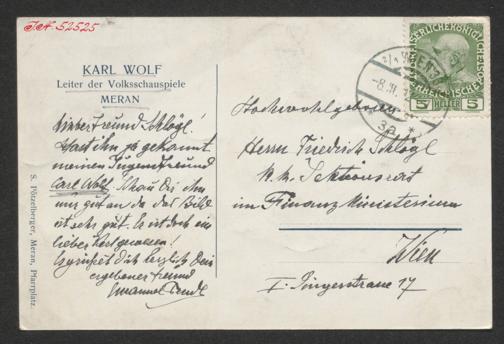 I.N. 52525
KARL WOLF
Leiter der Volksschauspiele
MERAN
Lieber Freund Schlögl!
Hast ihn ja gekannt
meinen Jugendfreund
Carl Wolf. Schau Dir ihn
nur gut an da das Bild
ist sehr gut. Es ist doch ein
lieber Kerl gewesen!
Es grüßt Dich herzlich Dein
ergebener Freund
Emanuel
S. Pötzelberger, Meran, Pfarrplatz.
KAISERLICHE KÖNIGLICHE
ÖSTERREICHISCHE
5 HELLER 5
Hochwohlgeboren
Herrn Friedrich Schlögl
K. k. Sektionsrat
im Finanz Ministerium
Wien
I. Singerstrasse 17